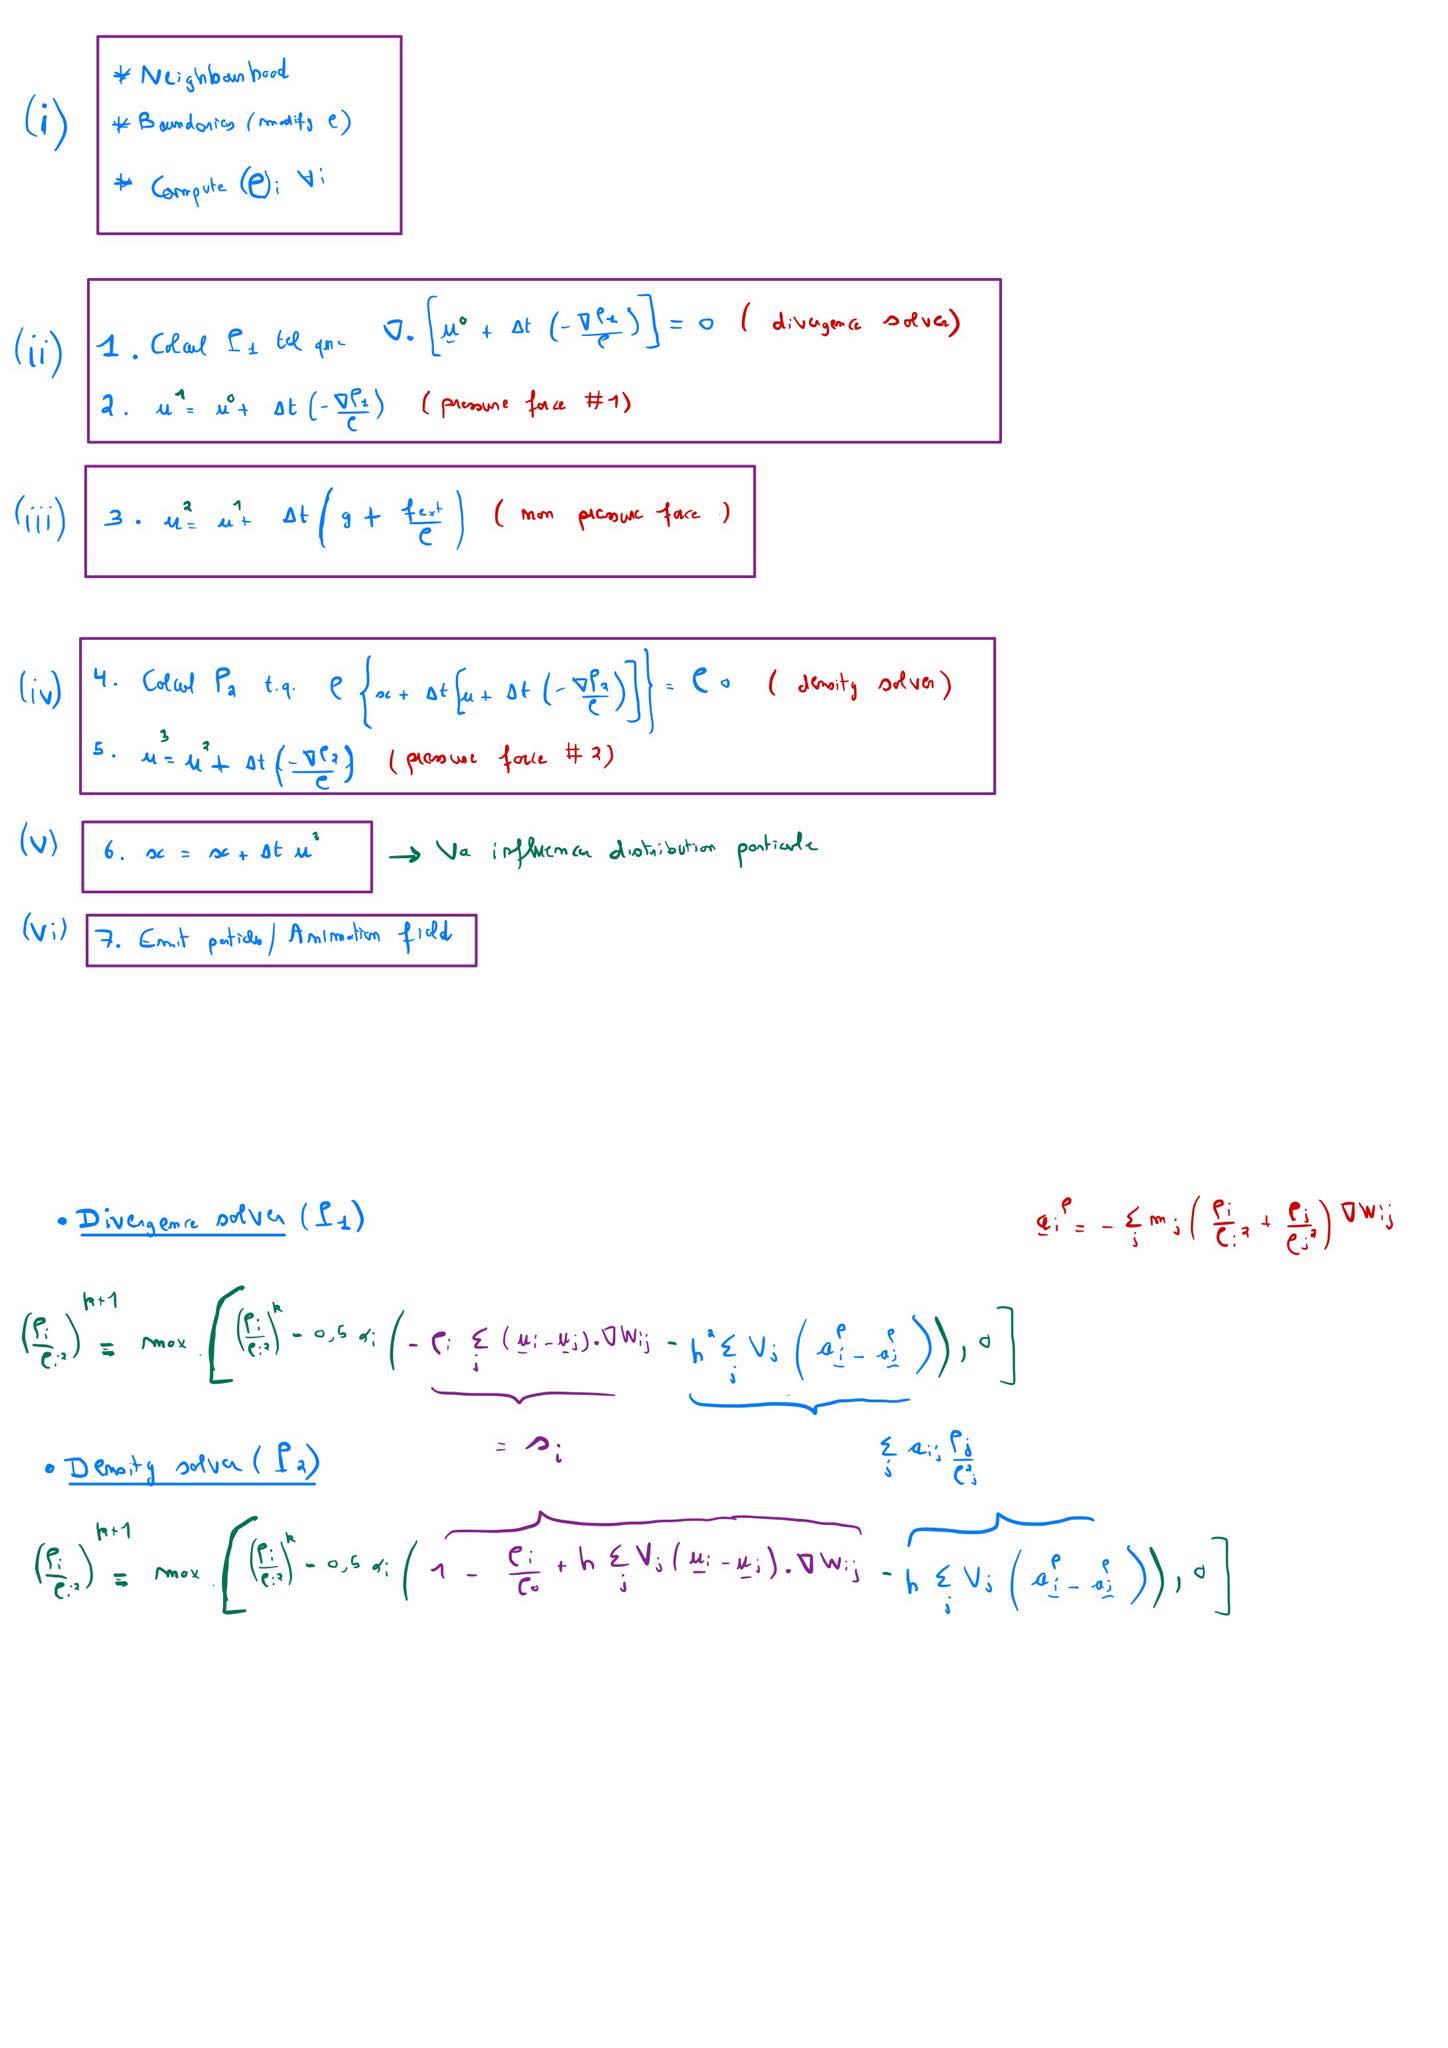 (i)
* Neighbourhood
* Boundaries (modify ρ)
* Compute (ρ)i ∀i
(ii)
1. Calcul P1 tel que ∇·[u⁰ + Δt (-∇P1/ρ)] = 0 (divergence solver)
2. u¹ = u⁰ + Δt (-∇P1/ρ) (pressure force #1)
(iii)
3. u² = u¹ + Δt (g + fext/ρ) (non pressure force)
(iv)
4. Calcul P2 t.q. ρ{x + Δt[u + Δt (-∇P2/ρ)]} = ρ0 (density solver)
5. u³ = u² + Δt (-∇P2/ρ) (pressure force #2)
(v)
6. x = x + Δt u³ → Va influencer distribution particule
(vi)
7. Emit particles/Animation field
• Divergence solver (P1)
aiᵖ = - Σj mj (Pi/ρi² + Pj/ρj²) ∇Wij
(Pi/ρi²)ᵏ⁺¹ = max [(Pi/ρi²)ᵏ - 0,5 αi (- ρi Σj (ui - uj)·∇Wij - h² Σj Vj (aiᵖ - ajᵖ)), 0]
= si
Σj aij Pj/ρj²
• Density solver (P2)
(Pi/ρi²)ᵏ⁺¹ = max [(Pi/ρi²)ᵏ - 0,5 αi (1 - ρi/ρ0 + h Σj Vj (ui - uj)·∇Wij - h Σj Vj (aiᵖ - ajᵖ)), 0]